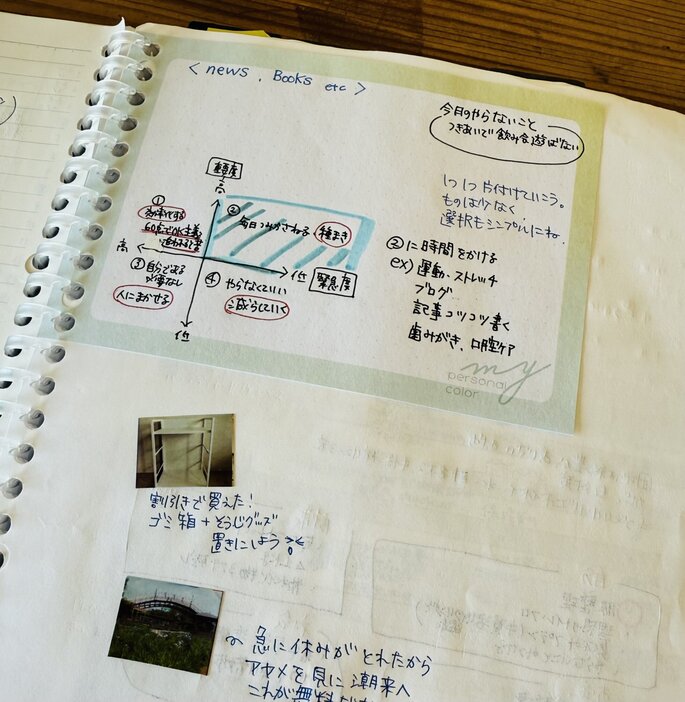 < news . Books etc >
今月のやらないこと
つきあいで飲み会、遊ばない
1つ1つ片付けていこう。
ものは少なく
選択もシンプルにね
重要度
高
①
60点でOK主義
②
毎日つみかさねる 種まき
高
低
緊急度
③ 自らでやる
必要なし
人にまかせる
④ やらなくていい
減らしていく
低
②に時間をかける
ex) 運動・ストレッチ
ブログ
記事コツコツ書く
歯みがき、口腔ケア
my
personal
color
割引きで買えた!
ゴミ箱+そうじグッズ
置きにしよう
急に休みがとれたから
アヤメを見に潮来へ
これが無料だ